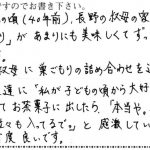 ですのでお書き下さい。
の頃(40年前)、長野の叔母の家
り」があまりにも美味しくてずっ
叔母に栗ごもりの詰め合わせを送
達に「私が子どもの頃から大好
てお茶菓子に出したら、「本当や。
粒々も入ってる
で。」と感激してい
度良いです。